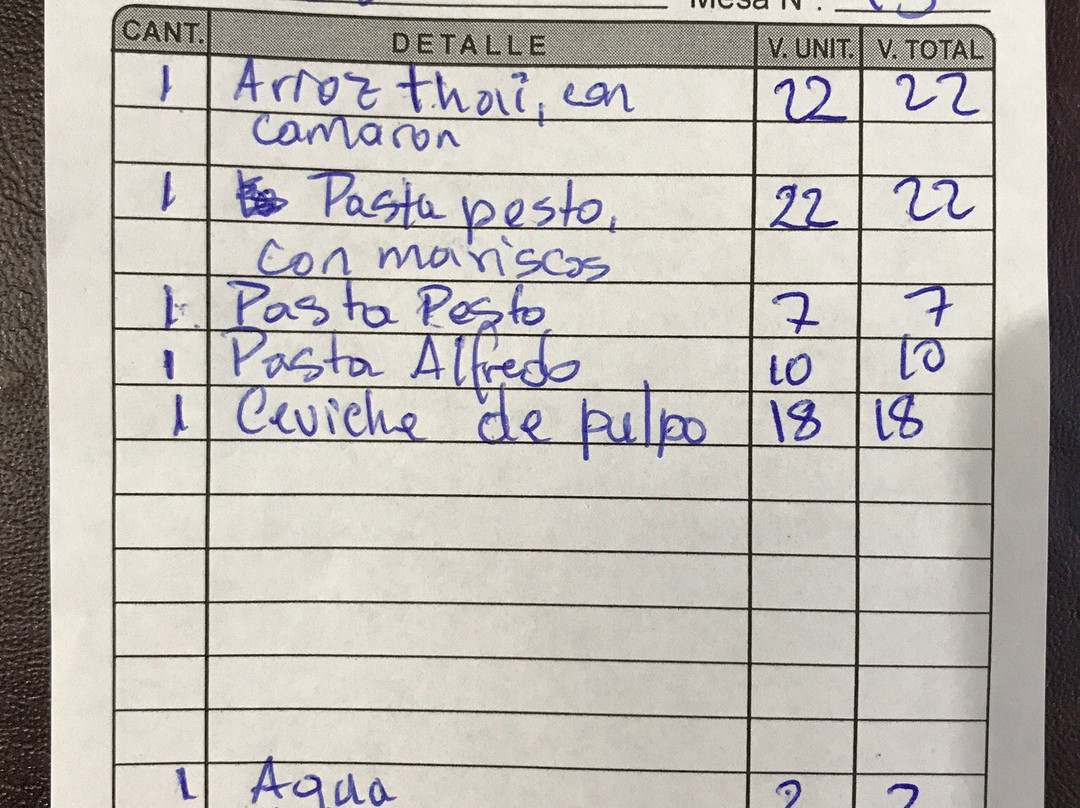 Mesa N°:
CANT. DETALLE V. UNIT. V. TOTAL
1 Arroz thai, con 22 22
camaron
1 Pasta pesto, 22 22
con mariscos
1 Pasta Pesto 7 7
1 Pasta Alfredo 10 10
1 Ceviche de pulpo 18 18
1 Agua 2 2